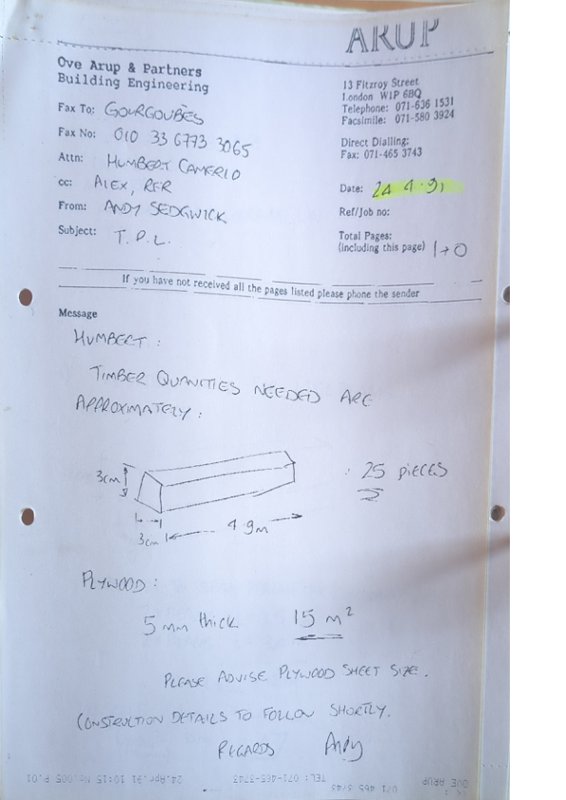 ARUP
Ove Arup & Partners
Building Engineering
13 Fitzroy Street
London W1P 6BQ
Telephone: 071-636 1531
Facsimile: 071-580 3924
Direct Dialling:
Fax: 071-465 3743
Fax To: GOURGOUBÈS
Fax No: 010 33 6773 3065
Attn: HUMBERT CAMERLO
cc: ALEX, RFR
From: ANDY SEDGWICK
Subject: T.P.L.
Date: 24 4.91
Ref/Job no:
Total Pages:
(including this page) 1+0
If you have not received all the pages listed please phone the sender
Message
HUMBERT:
TIMBER QUANITIES NEEDED ARE
APPROXIMATELY:
3cm
3cm
4.9m
: 25 PIECES
PLYWOOD:
5mm thick 15 m²
PLEASE ADVISE PLYWOOD SHEET SIZE.
CONSTRUCTION DETAILS TO FOLLOW SHORTLY.
REGARDS Andy
OVE ARUP 071 465 3743 TEL: 071-465-3743 24.Apr.91 15:10 No.005 P.01